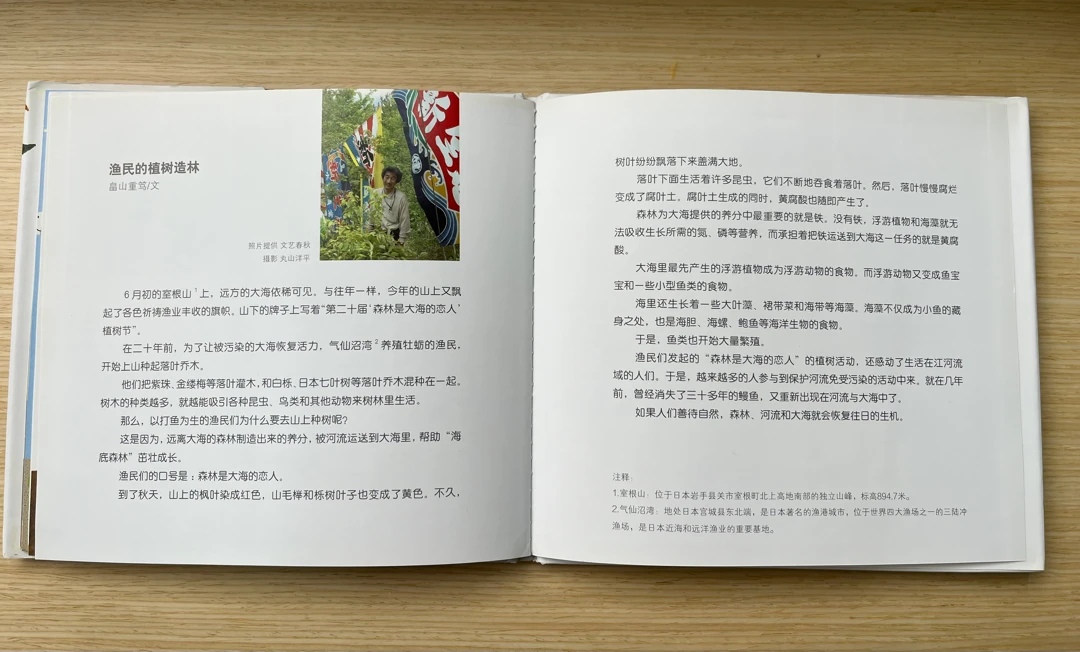 渔民的植树造林
畠山重笃/文
照片提供 文艺春秋
摄影 丸山洋平
6月初的室根山1上，远方的大海依稀可见。与往年一样，今年的山上又飘
起了各色祈祷渔业丰收的旗帜。山下的牌子上写着“第二十届‘森林是大海的恋人’
植树节”。
在二十年前，为了让被污染的大海恢复活力，气仙沼湾2养殖牡蛎的渔民，
开始上山种起落叶乔木。
他们把紫珠、金缕梅等落叶灌木，和白栎、日本七叶树等落叶乔木混种在一起。
树木的种类越多，就越能吸引各种昆虫、鸟类和其他动物来树林里生活。
那么，以打鱼为生的渔民们为什么要去山上种树呢？
这是因为，远离大海的森林制造出来的养分，被河流运送到大海里，帮助“海
底森林”茁壮成长。
渔民们的口号是：森林是大海的恋人。
到了秋天，山上的枫叶染成红色，山毛榉和栎树叶子也变成了黄色。不久，
树叶纷纷飘落下来盖满大地。
落叶下面生活着许多昆虫。它们不断地吞食着落叶。然后，落叶慢慢腐烂
变成了腐叶土。腐叶土生成的同时，黄腐酸也随即产生了。
森林为大海提供的养分中最重要的就是铁。没有铁，浮游植物和海藻就无
法吸收生长所需的氮、磷等营养，而承担着把铁运送到大海这一任务的就是黄腐
酸。
大海里最先产生的浮游植物成为浮游动物的食物。而浮游动物又变成鱼宝
宝和一些小型鱼类的食物。
海里还生长着一些大叶藻、裙带菜和海带等海藻。海藻不仅成为小鱼的藏
身之处，也是海胆、海螺、鲍鱼等海洋生物的食物。
于是，鱼类也开始大量繁殖。
渔民们发起的“森林是大海的恋人”的植树活动，还感动了生活在江河流
域的人们。于是，越来越多的人参与到保护河流免受污染的活动中来。就在几年
前，曾经消失了三十多年的鳗鱼，又重新出现在河流与大海中了。
如果人们善待自然，森林、河流和大海就会恢复往日的生机。
注释：
1.室根山：位于日本岩手县关市室根町北上高地南部的独立山峰，标高894.7米。
2.气仙沼湾：地处日本宫城县东北端，是日本著名的渔港城市，位于世界四大渔场之一的三陆冲
渔场，是日本近海和远洋渔业的重要基地。